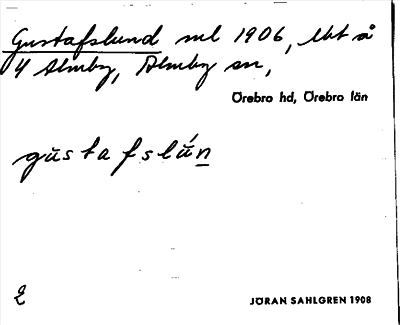 Gustafslund ml 1906, lht å
4 Almby, Almby sn,
Örebro hd, Örebro län
gŭstafslú̆n
2
JÖRAN SAHLGREN 1908